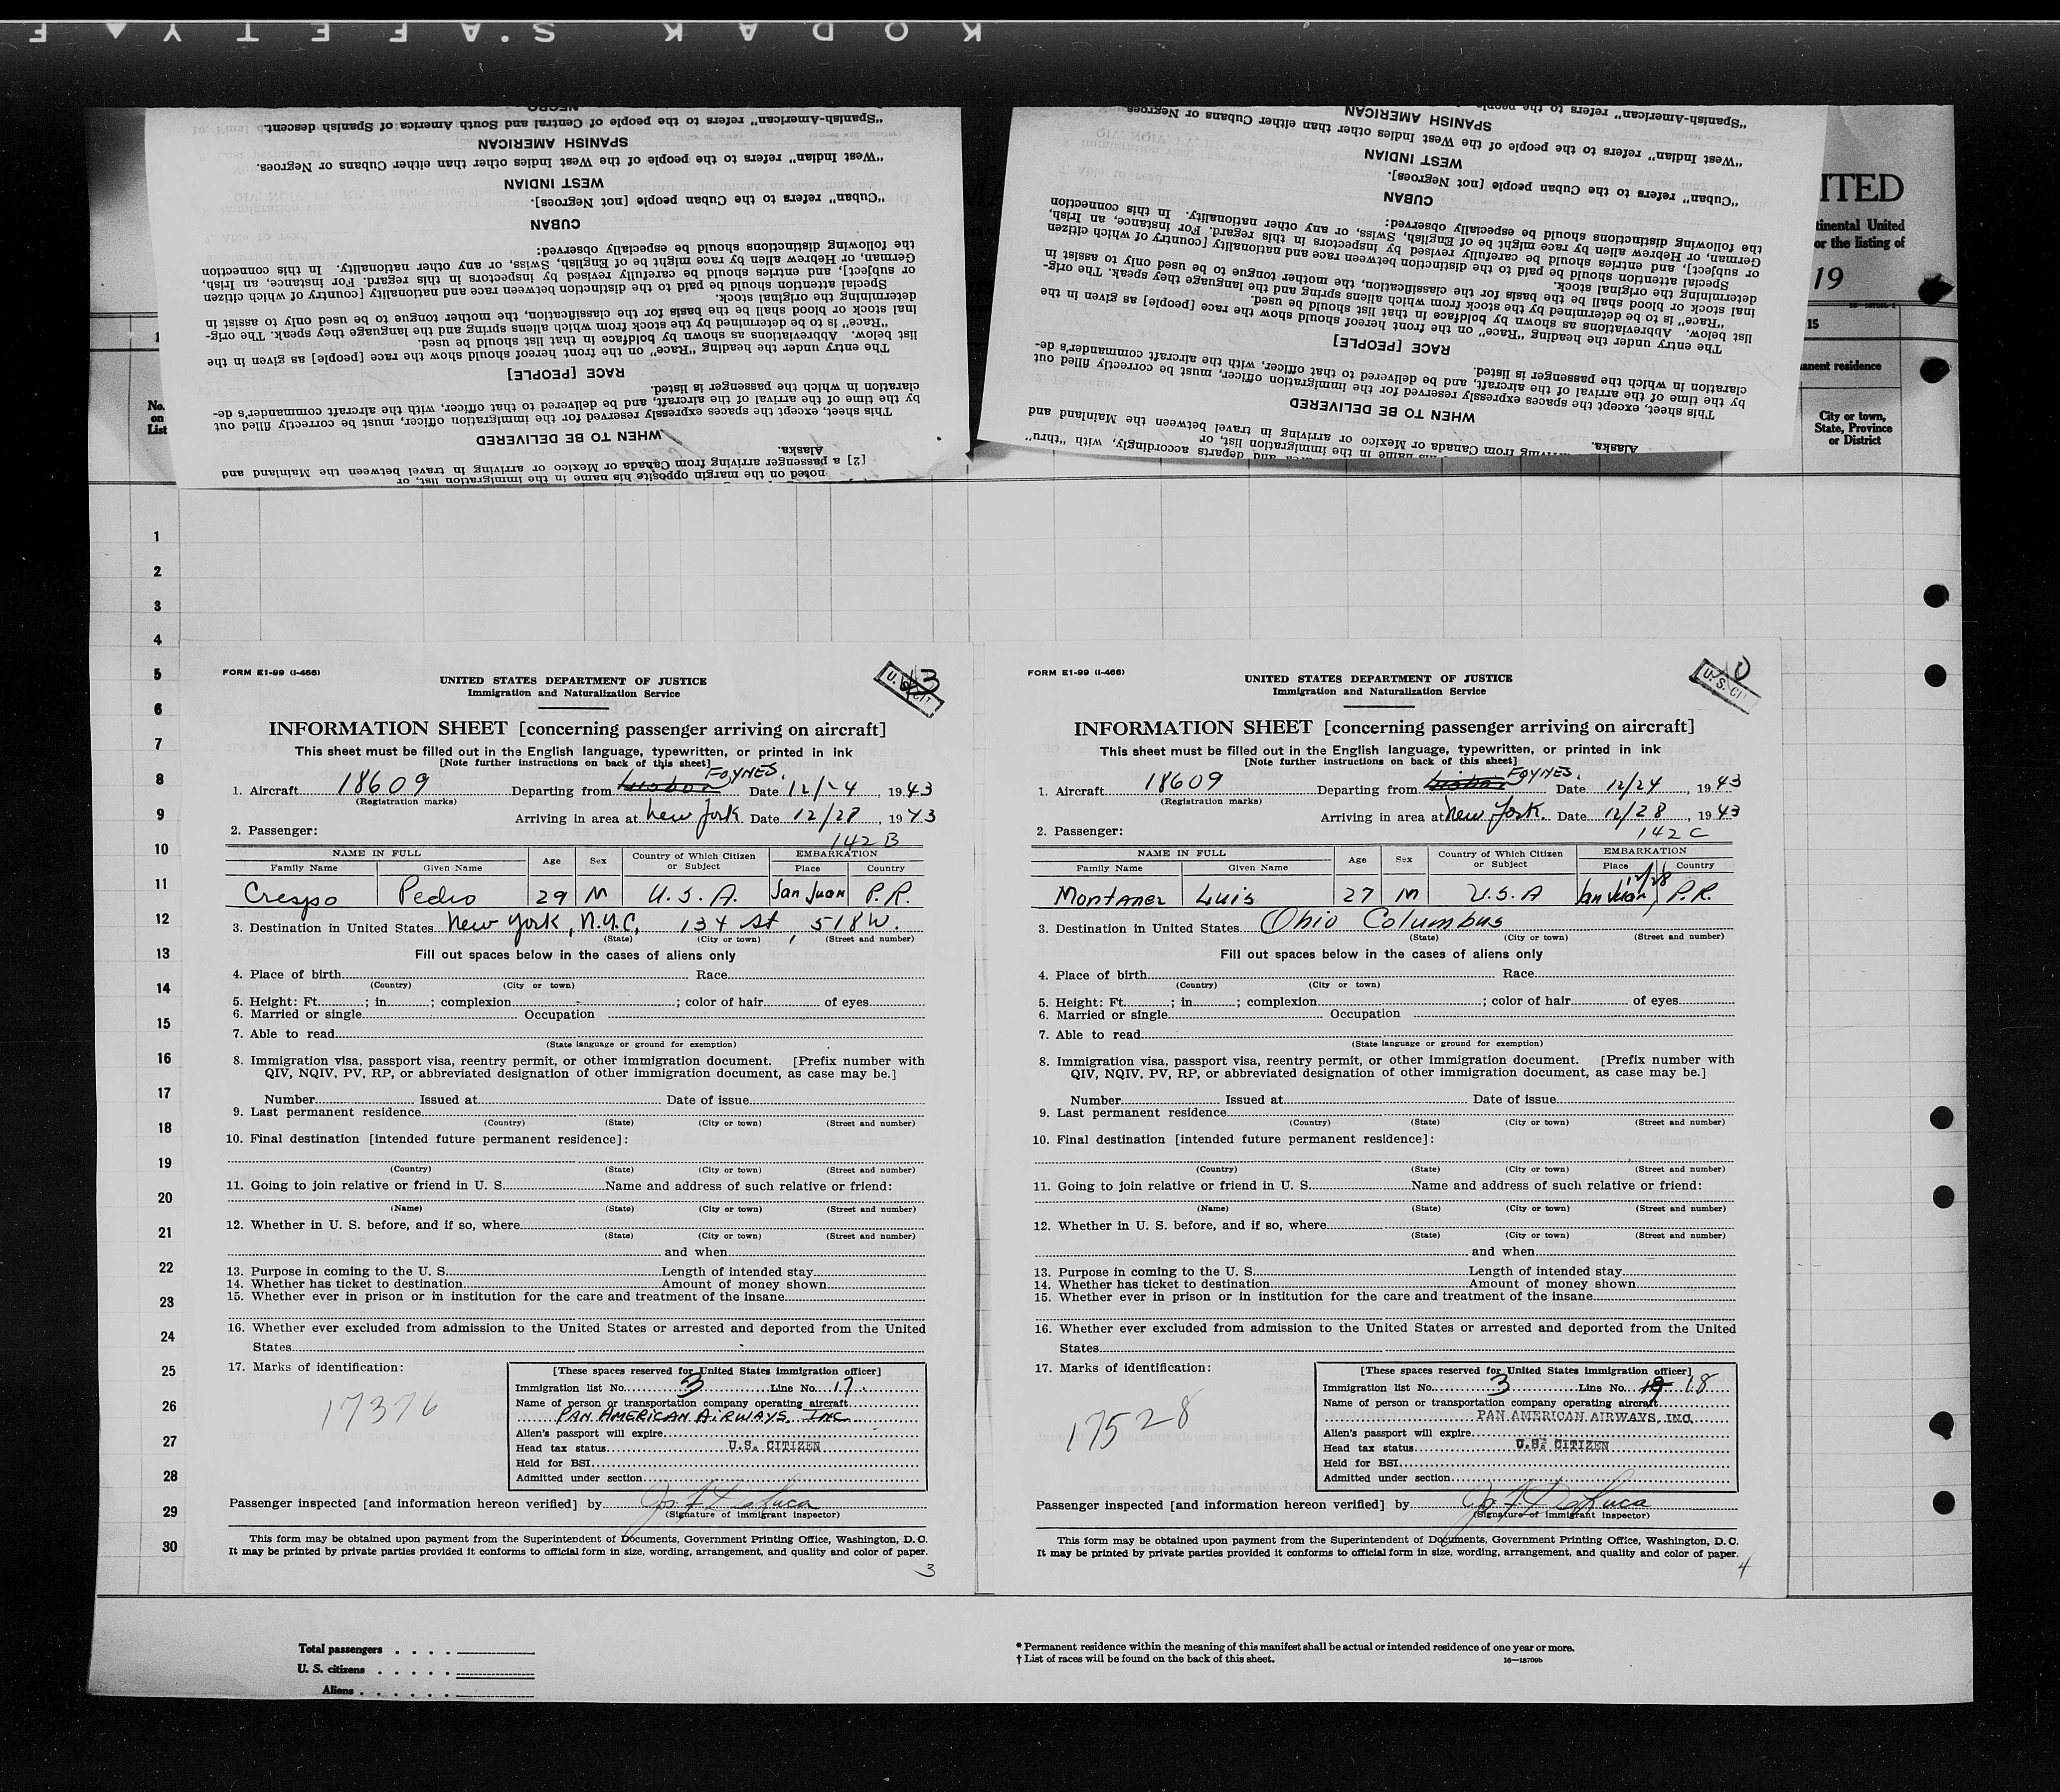 KODAK S.AFETY F
"Spanish-American" refers to the people of Central and South America of Spanish descent.
SPANISH AMERICAN
"West Indian" refers to the people of the West Indies other than either Cubans or Negroes.
WEST INDIAN
"Cuban" refers to the Cuban people [not Negroes].
CUBAN
the following distinctions should be especially observed:
German, or Hebrew alien by race might be of English, Swiss, or any other nationality. In this connection
or subject], and entries should be carefully revised by inspectors in this regard. For instance, an Irish,
Special attention should be paid to the distinction between race and nationality [country of which citizen
determining the original stock.
inal stock or blood shall be the basis for the classification, the mother tongue to be used only to assist in
"Race" is to be determined by the stock from which aliens spring and the language they speak. The orig-
list below. Abbreviations as shown by boldface in that list should be used.
The entry under the heading "Race" on the front hereof should show the race [people] as given in the
RACE [PEOPLE]
claration in which the passenger is listed.
by the time of the arrival of the aircraft, and be delivered to that officer, with the aircraft commander's de-
This sheet, except the spaces expressly reserved for the immigration officer, must be correctly filled out
WHEN TO BE DELIVERED
Alaska.
[2] a passenger arriving from Canada or Mexico or arriving in travel between the Mainland and
noted on the margin opposite his name in the immigration list, or
"Spanish-American" refers to the people
SPANISH AMERICAN
"West Indian" refers to the people of the West Indies other than either Cubans or Negroes
WEST INDIAN
"Cuban" refers to the Cuban people [not Negroes].
CUBAN
the following distinctions should be especially observed:
German, or Hebrew alien by race might be of English, Swiss, or any other nationality. In this connection
or subject], and entries should be carefully revised by inspectors in this regard. For instance, an Irish,
Special attention should be paid to the distinction between race and nationality [country of which citizen
determining the original stock.
inal stock or blood shall be the basis for the classification, the mother tongue to be used only to assist in
"Race" is to be determined by the stock from which aliens spring and the language they speak. The orig-
list below. Abbreviations as shown by boldface in that list should be used.
The entry under the heading "Race" on the front hereof should show the race [people] as given in the
RACE [PEOPLE]
claration in which the passenger is listed.
by the time of the arrival of the aircraft, and be delivered to that officer, with the aircraft commander's de-
This sheet, except the spaces expressly reserved for the immigration officer, must be correctly filled out
WHEN TO BE DELIVERED
Alaska.
arriving from Canada or Mexico or arriving in travel between the Mainland and
his name in the immigration list, or
and departs accordingly, with "thru"
ITED
tinental United
or the listing of
19
15
anent residence
City or town,
State, Province
or District
No.
on
List
1
2
3
4
5
6
7
8
9
10
11
12
13
14
15
16
17
18
19
20
21
22
23
24
25
26
27
28
29
30
FORM E1-99 (I-466)
UNITED STATES DEPARTMENT OF JUSTICE
Immigration and Naturalization Service
U.S. CIT
13
INFORMATION SHEET [concerning passenger arriving on aircraft]
This sheet must be filled out in the English language, typewritten, or printed in ink
[Note further instructions on back of this sheet]
1. Aircraft 18609 Departing from Lisbon FOYNES. Date 12/24, 1943
(Registration marks)
Arriving in area at New York Date 12/28, 1943
2. Passenger:
142 B
NAME IN FULL Age Sex Country of Which Citizen or Subject EMBARKATION
Family Name Given Name Place Country
Crespo Pedro 29 M U.S.A. San Juan P.R.
3. Destination in United States New York, N.Y.C, 134 St, 518 W.
(State) (City or town) (Street and number)
Fill out spaces below in the cases of aliens only
4. Place of birth Race
(Country) (City or town)
5. Height: Ft. ; in ; complexion ; color of hair of eyes
6. Married or single Occupation
7. Able to read
(State language or ground for exemption)
8. Immigration visa, passport visa, reentry permit, or other immigration document. [Prefix number with
QIV, NQIV, PV, RP, or abbreviated designation of other immigration document, as case may be.]
Number Issued at Date of issue
9. Last permanent residence
(Country) (State) (City or town) (Street and number)
10. Final destination [intended future permanent residence]:
(Country) (State) (City or town) (Street and number)
11. Going to join relative or friend in U. S. Name and address of such relative or friend:
(Name) (State) (City or town) (Street and number)
12. Whether in U. S. before, and if so, where
(State) (City or town) (Street and number)
and when
13. Purpose in coming to the U. S. Length of intended stay
14. Whether has ticket to destination Amount of money shown
15. Whether ever in prison or in institution for the care and treatment of the insane
16. Whether ever excluded from admission to the United States or arrested and deported from the United
States
17. Marks of identification:
17376
[These spaces reserved for United States immigration officer]
Immigration list No. 3 Line No. 17
Name of person or transportation company operating aircraft
PAN AMERICAN AIRWAYS, INC
Alien's passport will expire
Head tax status U.S. CITIZEN
Held for BSI
Admitted under section
Passenger inspected [and information hereon verified] by Jos. F. DeLuca
(Signature of immigrant inspector)
This form may be obtained upon payment from the Superintendent of Documents, Government Printing Office, Washington, D. C.
It may be printed by private parties provided it conforms to official form in size, wording, arrangement, and quality and color of paper.
3
FORM E1-99 (I-466)
UNITED STATES DEPARTMENT OF JUSTICE
Immigration and Naturalization Service
U.S. CIT
INFORMATION SHEET [concerning passenger arriving on aircraft]
This sheet must be filled out in the English language, typewritten, or printed in ink
[Note further instructions on back of this sheet]
1. Aircraft 18609 Departing from Lisbon FOYNES. Date 12/24, 1943
(Registration marks)
Arriving in area at New York. Date 12/28, 1943
2. Passenger:
142 C
NAME IN FULL Age Sex Country of Which Citizen or Subject EMBARKATION
Family Name Given Name Place Country
12/28
Montaner Luis 27 M U.S.A San Juan, P.R.
3. Destination in United States Ohio Columbus
(State) (City or town) (Street and number)
Fill out spaces below in the cases of aliens only
4. Place of birth Race
(Country) (City or town)
5. Height: Ft. ; in ; complexion ; color of hair of eyes
6. Married or single Occupation
7. Able to read
(State language or ground for exemption)
8. Immigration visa, passport visa, reentry permit, or other immigration document. [Prefix number with
QIV, NQIV, PV, RP, or abbreviated designation of other immigration document, as case may be.]
Number Issued at Date of issue
9. Last permanent residence
(Country) (State) (City or town) (Street and number)
10. Final destination [intended future permanent residence]:
(Country) (State) (City or town) (Street and number)
11. Going to join relative or friend in U. S. Name and address of such relative or friend:
(Name) (State) (City or town) (Street and number)
12. Whether in U. S. before, and if so, where
(State) (City or town) (Street and number)
and when
13. Purpose in coming to the U. S. Length of intended stay
14. Whether has ticket to destination Amount of money shown
15. Whether ever in prison or in institution for the care and treatment of the insane
16. Whether ever excluded from admission to the United States or arrested and deported from the United
States
17. Marks of identification:
17528
[These spaces reserved for United States immigration officer]
Immigration list No. 3 Line No. 18
Name of person or transportation company operating aircraft
PAN AMERICAN AIRWAYS, INC.
Alien's passport will expire
Head tax status U.S. CITIZEN
Held for BSI
Admitted under section
Passenger inspected [and information hereon verified] by Jos. F. DeLuca
(Signature of immigrant inspector)
This form may be obtained upon payment from the Superintendent of Documents, Government Printing Office, Washington, D. C.
It may be printed by private parties provided it conforms to official form in size, wording, arrangement, and quality and color of paper.
4
Total passengers
U. S. citizens
Aliens
* Permanent residence within the meaning of this manifest shall be actual or intended residence of one year or more.
† List of races will be found on the back of this sheet.
16—18709b